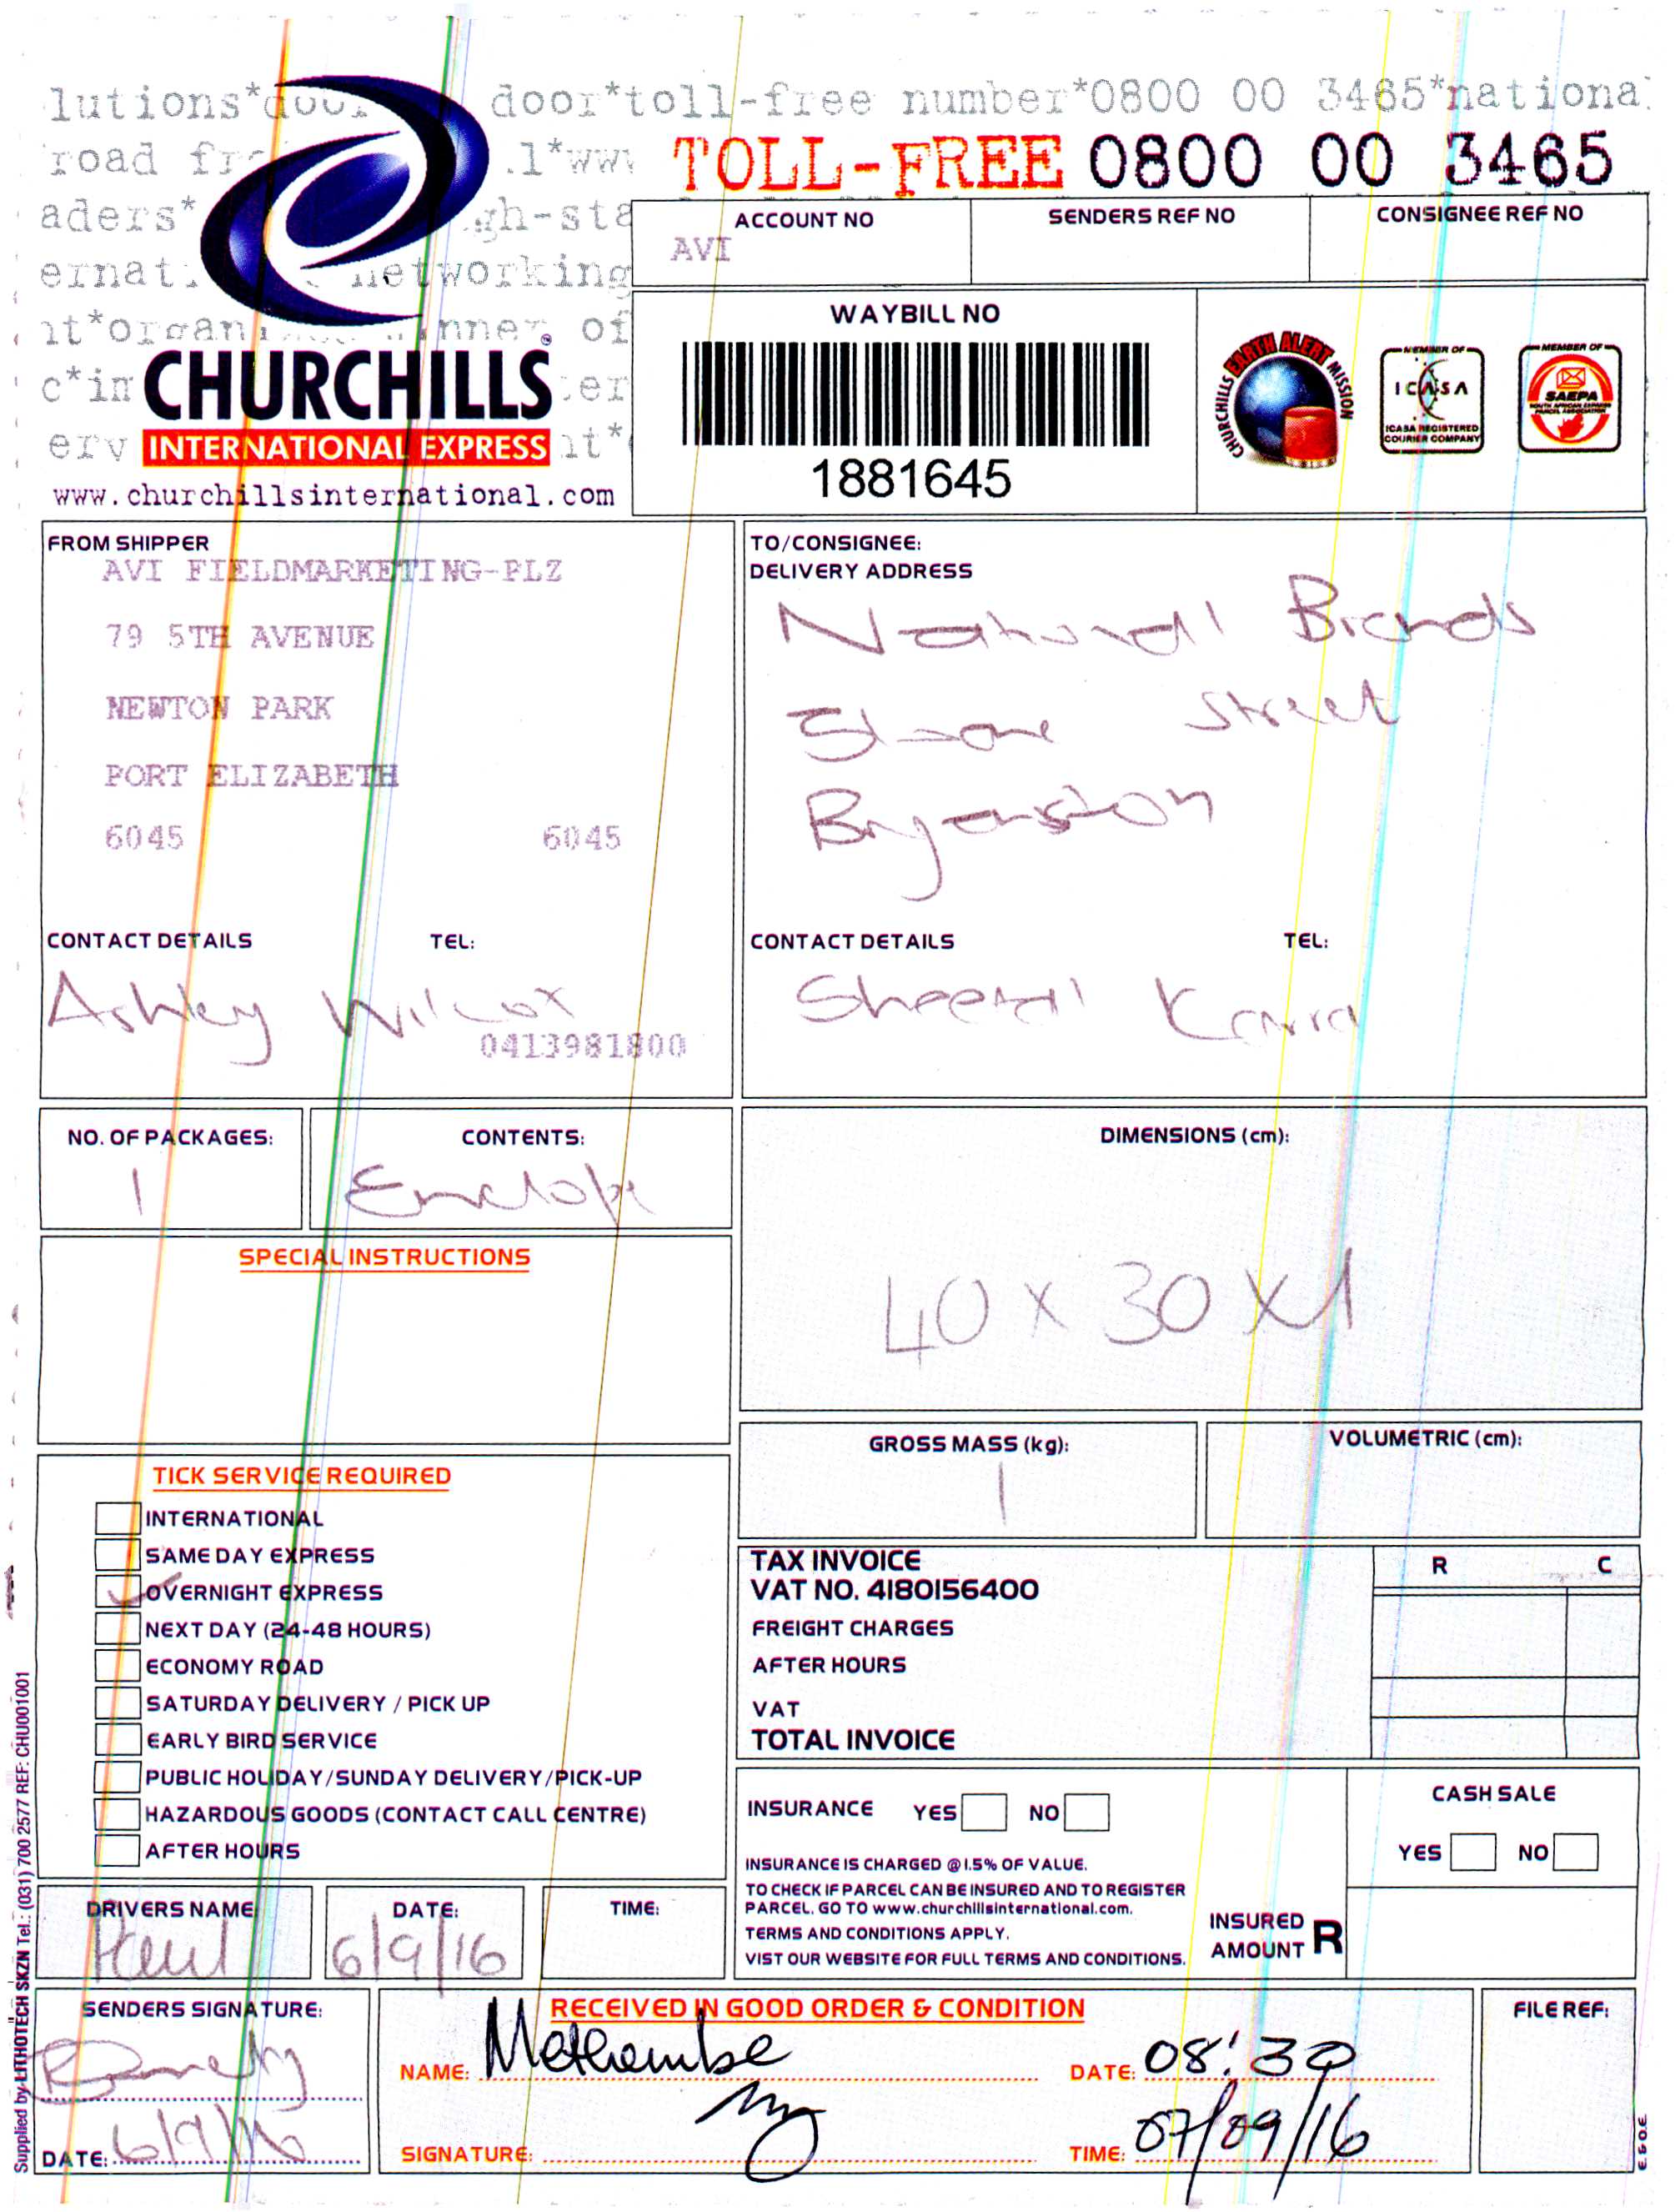 lutions*door door*toll-free number*0800 00 3465*nationa
road fr .l*www
TOLL-FREE 0800 00 3465
aders* gh-sta
ernat networking
nt*organi inner of
c*in ter
erv nt*
CHURCHILLS
INTERNATIONAL EXPRESS
www.churchillsinternational.com
ACCOUNT NO SENDERS REF NO CONSIGNEE REF NO
AVI
WAYBILL NO
1881645
CHURCHILLS EARTH ALERT MISSION
MEMBER OF
ICASA
ICASA REGISTERED
COURIER COMPANY
MEMBER OF
SAEPA
SOUTH AFRICAN EXPRESS
PARCEL ASSOCIATION
FROM SHIPPER
AVI FIELDMARKETING-PLZ
79 5TH AVENUE
NEWTON PARK
PORT ELIZABETH
6045 6045
CONTACT DETAILS TEL:
Ashley Wilcox
0413981800
TO/CONSIGNEE:
DELIVERY ADDRESS
National Brands
Sloane Street
Bryanston
CONTACT DETAILS TEL:
Sheetal
NO. OF PACKAGES: CONTENTS:
1 Envelope
DIMENSIONS (cm):
40 x 30 x 1
SPECIAL INSTRUCTIONS
GROSS MASS (kg): VOLUMETRIC (cm):
1
TICK SERVICE REQUIRED
INTERNATIONAL
SAME DAY EXPRESS
OVERNIGHT EXPRESS
NEXT DAY (24-48 HOURS)
ECONOMY ROAD
SATURDAY DELIVERY / PICK UP
EARLY BIRD SERVICE
PUBLIC HOLIDAY/SUNDAY DELIVERY/PICK-UP
HAZARDOUS GOODS (CONTACT CALL CENTRE)
AFTER HOURS
TAX INVOICE R C
VAT NO. 4180156400
FREIGHT CHARGES
AFTER HOURS
VAT
TOTAL INVOICE
INSURANCE YES NO
INSURANCE IS CHARGED @ 1.5% OF VALUE.
TO CHECK IF PARCEL CAN BE INSURED AND TO REGISTER
PARCEL, GO TO www.churchillsinternational.com.
TERMS AND CONDITIONS APPLY.
VIST OUR WEBSITE FOR FULL TERMS AND CONDITIONS.
INSURED
AMOUNT R
CASH SALE
YES NO
DRIVERS NAME: DATE: TIME:
Paul 6/9/16
SENDERS SIGNATURE:
DATE: 6/9/16
RECEIVED IN GOOD ORDER & CONDITION
NAME: Methembe DATE: 08:30
SIGNATURE: TIME: 07/09/16
FILE REF:
E.&O.E.
Supplied by LITHOTECH SKZN Tel.: (031) 700 2577 REF: CHU001001